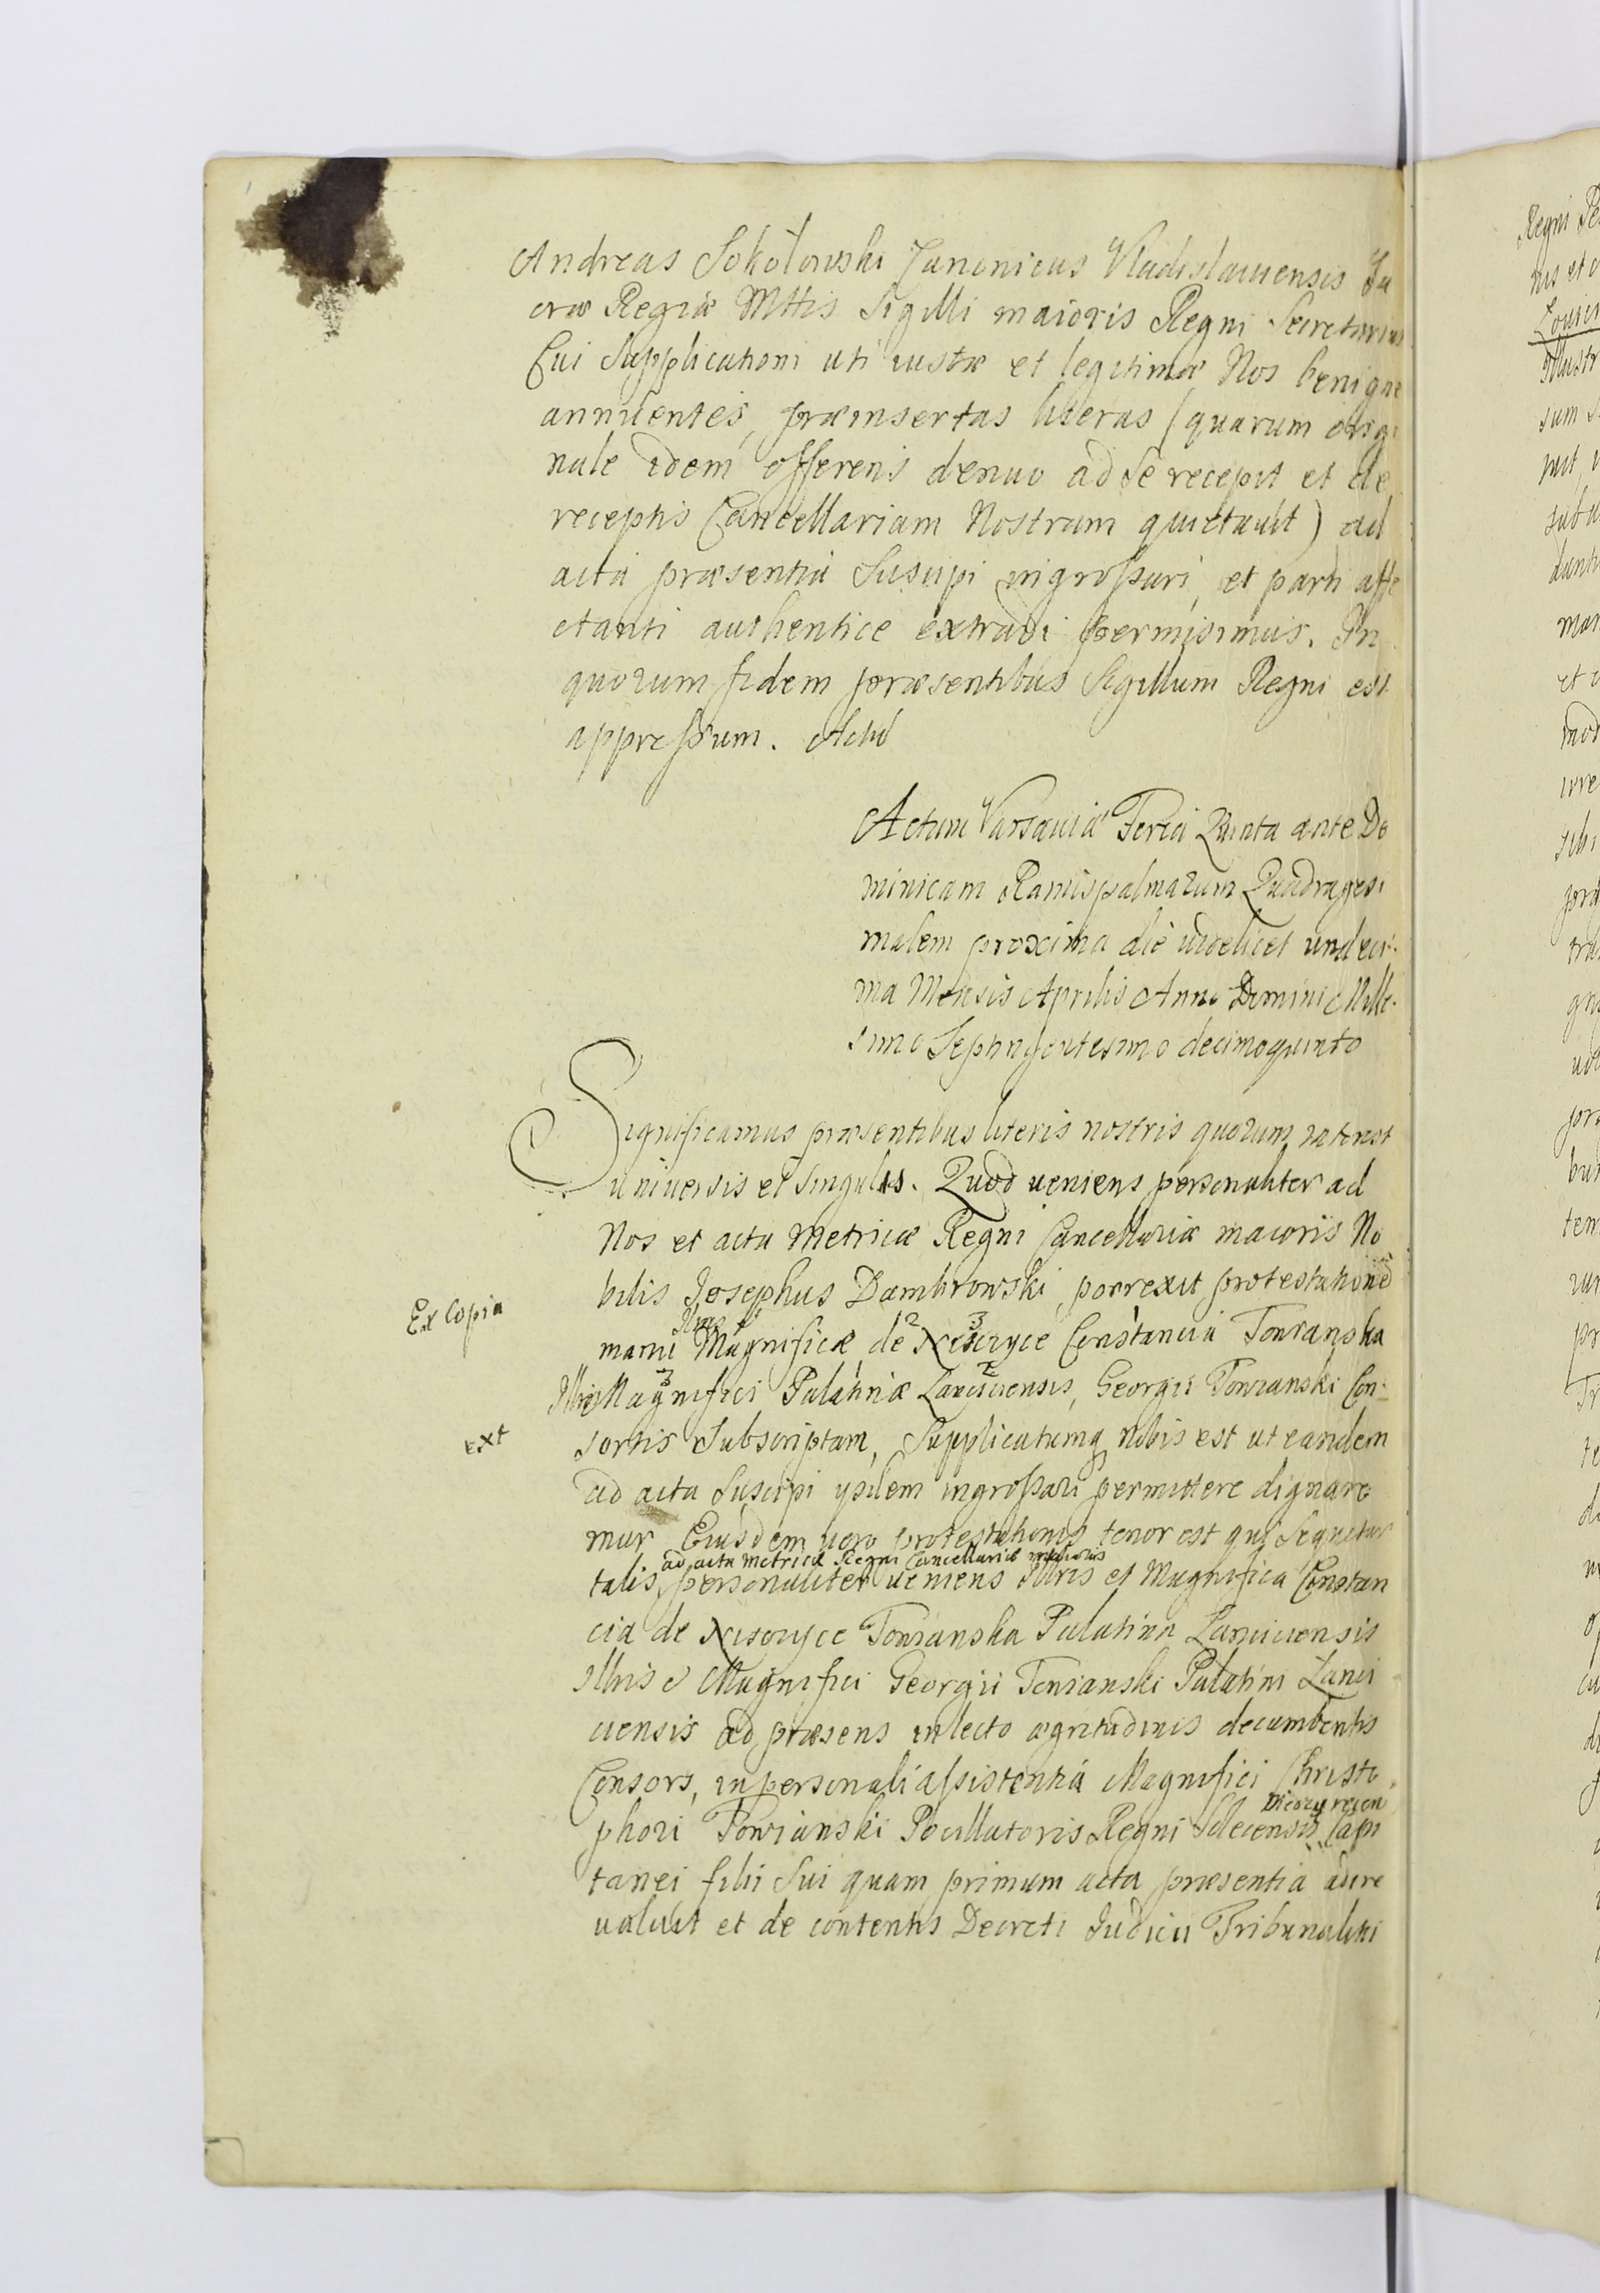 Andreas Sokołowski Canonicus Vladislauiensis Sa
cræ Regiæ Mttis Sigilli maioris Regni Secretarius
Cui Supplicationi uti iustæ et legitimæ Nos benigne
annuentes, præinsertas literas (quarum origi
nale idem offerens denuo ad se recepit et de
receptis Cancellariam Nostram quietauit) ad
acta præsentia Suscipi ingrossari, et parti affe
ctanti authentice extradi permisimus. In
quorum fidem præsentibus Sigillum Regni est
appressum. Actu
Actum Varsauiæ Feria Quinta ante Do
minicam Ramispalmarum Quadragesi
malem proxima die videlicet undeci
ma Mensis Aprilis Anno Domini Mille
simo Septingentesimo decimoquinto
Significamus præsentibus literis nostris quorum interest
uniuersis et singulis. Quod ueniens personaliter ad
Nos et acta Metricæ Regni Cancellariæ maioris No
bilis Josephus Dambrowski, porrexit protestationē
Ex Copia
manu Magnificæ de Constancia Towianska
Magnifici Palatinæ Lanciciensis, Georgii Towianski Con
ext
sortis Subscriptam, Supplicatumq nobis est ut eandem
ad acta Suscipi ysdem ingrossari permittere dignare
mur Eiusdem uero protestationis tenor est qui Sequitur
ad acta Metricæ Regni Cancellariæ maioris
talis, personaliter ueniens Illris et Magnifica Constan
cia de Towianska Palatina Lanciciensis
Illris et Magnifici Georgii Towianski Palatini Lanci
ciensis ad præsens in lecto ægritudinis decumbentis
Consors, in personali assistentia Magnifici Christo
phori Towianski Pocillatoris Regni Capi
tanei filii Sui quam primum acta præsentia adire
ualuit et de contentis Decreti Judicii Tribunalitii